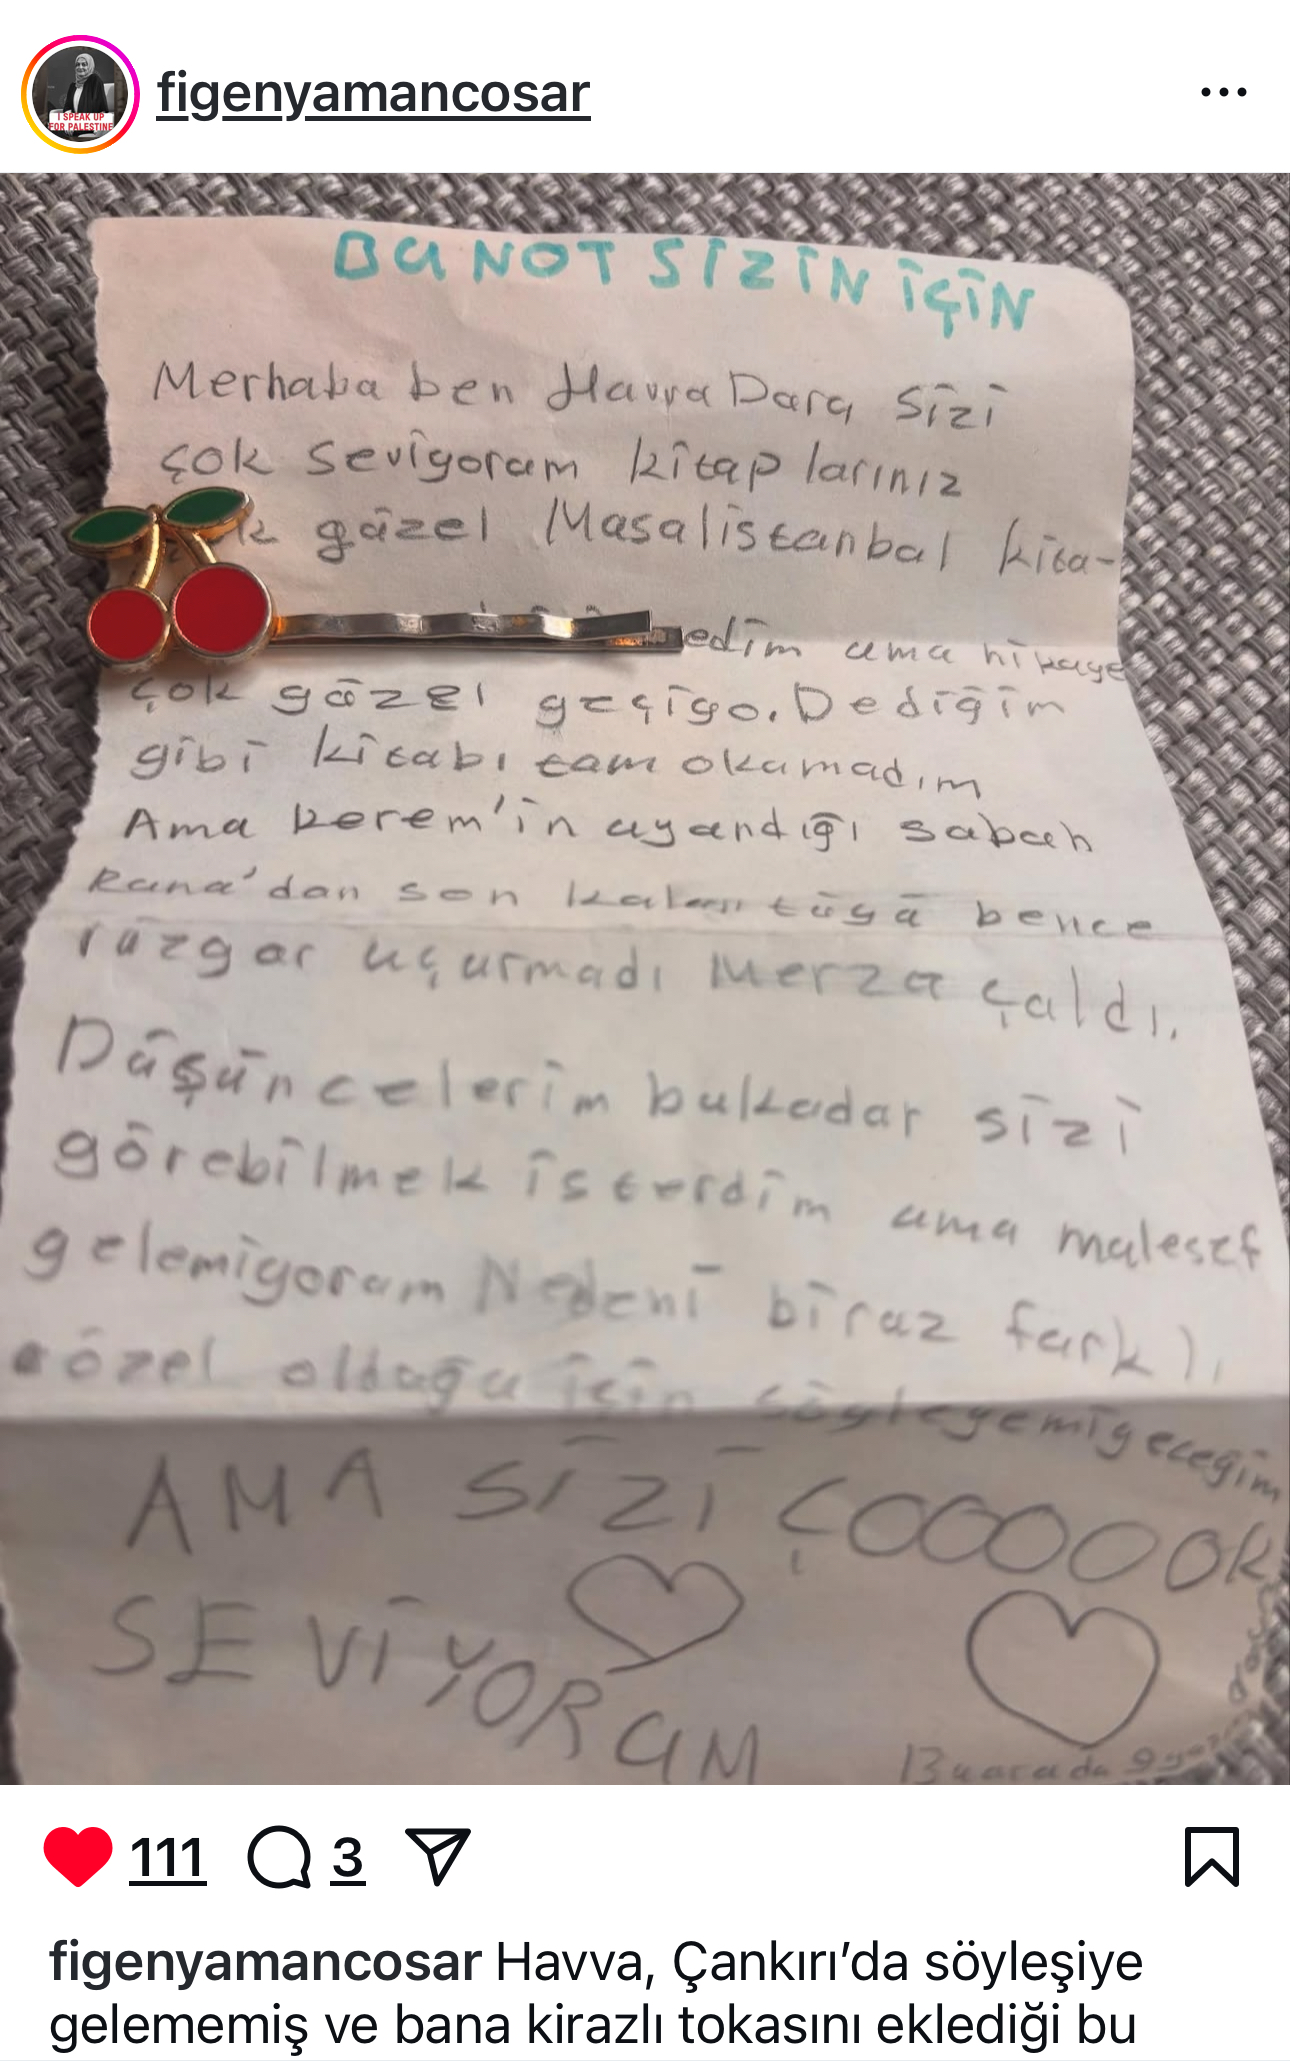 figenyamancosar
I SPEAK UP
FOR PALESTINE
BU NOT SİZİN İÇİN
Merhaba ben Havva Dara sizi
çok seviyorum kitap larınız
güzel Masalistanbul kita-
edim ama hikaye
çok güzel geçiyo. Dediğim
gibi kitabı tam okumadım
Ama kerem'in uyandığı sabah
Rana'dan son kalan tüyü bence
rüzgar uçurmadı Merza çaldı.
Düşüncelerim bukadar sizi
görebilmek isterdim ama malesef
gelemiyorum Nedeni biraz farklı
özel olduğu için söyleyemiyeceğim
AMA SİZİ ÇOOOOOK
SEVİYORUM
Bu arada 9
111 3
figenyamancosar Havva, Çankırı’da söyleşiye
gelememiş ve bana kirazlı tokasını eklediği bu